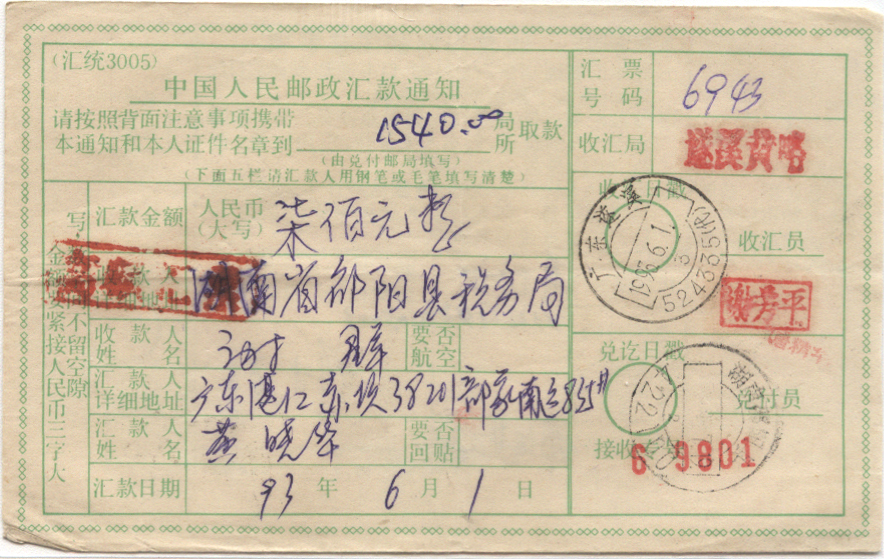 (汇统3005)
中国人民邮政汇款通知
请按照背面注意事项携带
本通知和本人证件名章到 1540.00 局所 取款
(由兑付邮局填写)
(下面五栏请汇款人用钢笔或毛笔填写清楚)
汇票号码 6943
收汇局 遂溪黄略
写
金额
不留空隙
紧接人民币三字大
汇款金额 人民币(大写) 柒佰元整
收款人
湖南省祁阳县税务局
收款人姓名
要否航空
汇款人详细地址 广东湛江
汇款人姓名 黄晓华
要否回贴
汇款日期 93 年 6 月 1 日
收汇日戳
广东遂溪
524335(代)
收汇员
谢芳平
兑讫日戳
兑付员
接收专
6 9801